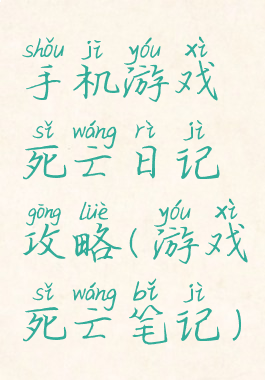 shǒu jī yóu xì
手机游戏
sǐ wáng rì jì
死亡日记
gōng lüè yóu xì
攻略(游戏
sǐ wáng bǐ jì
死亡笔记)